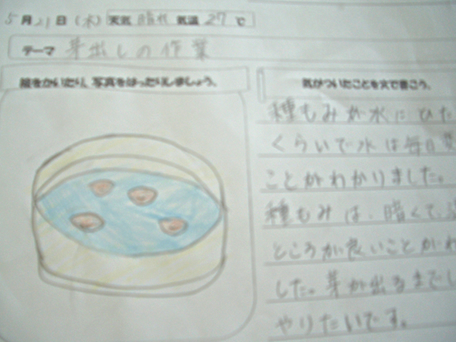 5月21日(水) 天気 晴れ 気温 27℃
テーマ 芽出しの作業
絵をかいたり、写真をはったりしましょう。
気がついたことを文で書こう。
種もみが水にひた
くらいで水は毎日
ことがわかりました。
種もみは、暗くて、
ところが良いことがわ
した。芽が出るまでし
やりたいです。